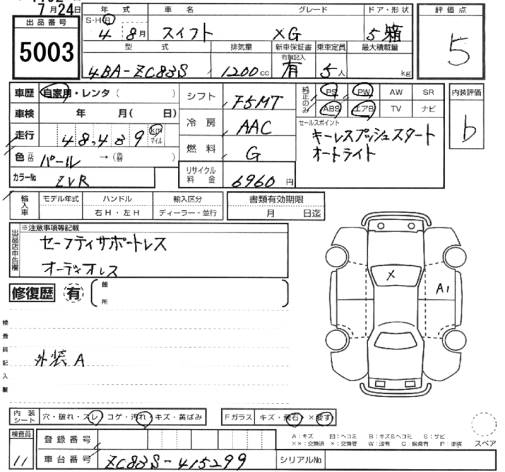 7月24日
出品番号
5003
年式 車名 グレード ドア・形状
S・H・R
4年8月 スイフト XG 5 箱
型式 排気量 新車保証書 乗車定員 最大積載量
有 記入
4BA-ZC83S 1200cc 有 5人 kg
評価点
5
車歴 自家用・レンタ( )
車検 年 月( )
走行 48,489 km マイル
色 元色 パール →( )
カラーNo ZVR
シフト F5MT
冷房 AAC
燃料 G
リサイクル料金 6960円
純正のみ PS PW AW SR
ABS エアB TV ナビ
セールスポイント
キーレスプッシュスタート
オートライト
内装評価
b
輸入車 モデル年式 ハンドル 輸入区分
年 右H・左H ディーラー・並行
書類有効期限
月 日迄
出品店申告欄
※注意事項等記載
セーフティサポートレス
オーディオレス
修復歴 有 箇所
検査員記入欄
外装A
X
A1
内装シート 穴・破れ・スレ・コゲ・汚れ・キズ・黄ばみ
Fガラス キズ・飛石・×要す
A:キズ U:ヘコミ B:キズ&ヘコミ S:サビ
××:交換済 ×:交換要 W:波有 C:腐食有 P:塗装
スペア
検査員
11
登録番号
車台番号 ZC83S-415299
シリアルNo